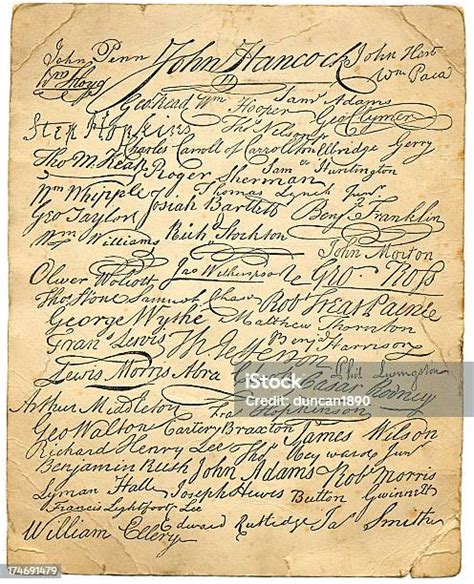 John Penn John Hancock John Hart
Wm Floyd Wm Paca
Geo Read Wm Hooper Saml Adams
Geo Clymer
Step Hopkins Tho Nelson Jr
Charles Carroll of Carrollton Elbridge Gerry
Tho M:Kean Roger Sherman Sam Huntington
Wm Whipple Thomas Lynch Junr
Geo Taylor Josiah Bartlett Benj Franklin
Wm Williams Rich Stockton
John Morton
Oliver Wolcott Jno Witherspoon Geo Ross
Thos Stone Samuel Chase Rob Treat Paine
George Wythe Matthew Thornton
Fran Lewis Th Jefferson Benj Harrison
Lewis Morris Abra Phil Livingston
Cesar Rodney
iStock
Credit: duncan1890
Arthur Middleton Fra Hopkinson
Geo Walton Carter Braxton James Wilson
Richard Henry Lee Tho Heyward Junr
Benjamin Rush John Adams Rob Morris
Lyman Hall Joseph Hewes Button Gwinnett
Francis Lightfoot Lee
William Ellery Edward Rutledge Ja Smith
174691479